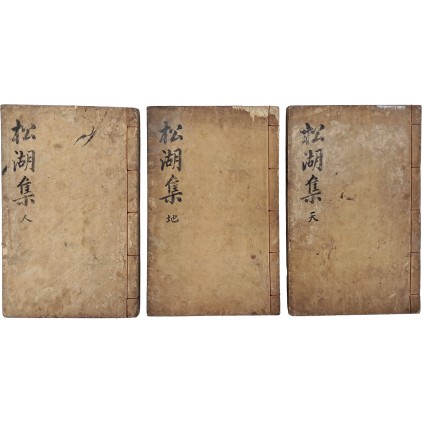 松湖集
天
松湖集
地
松湖集
人